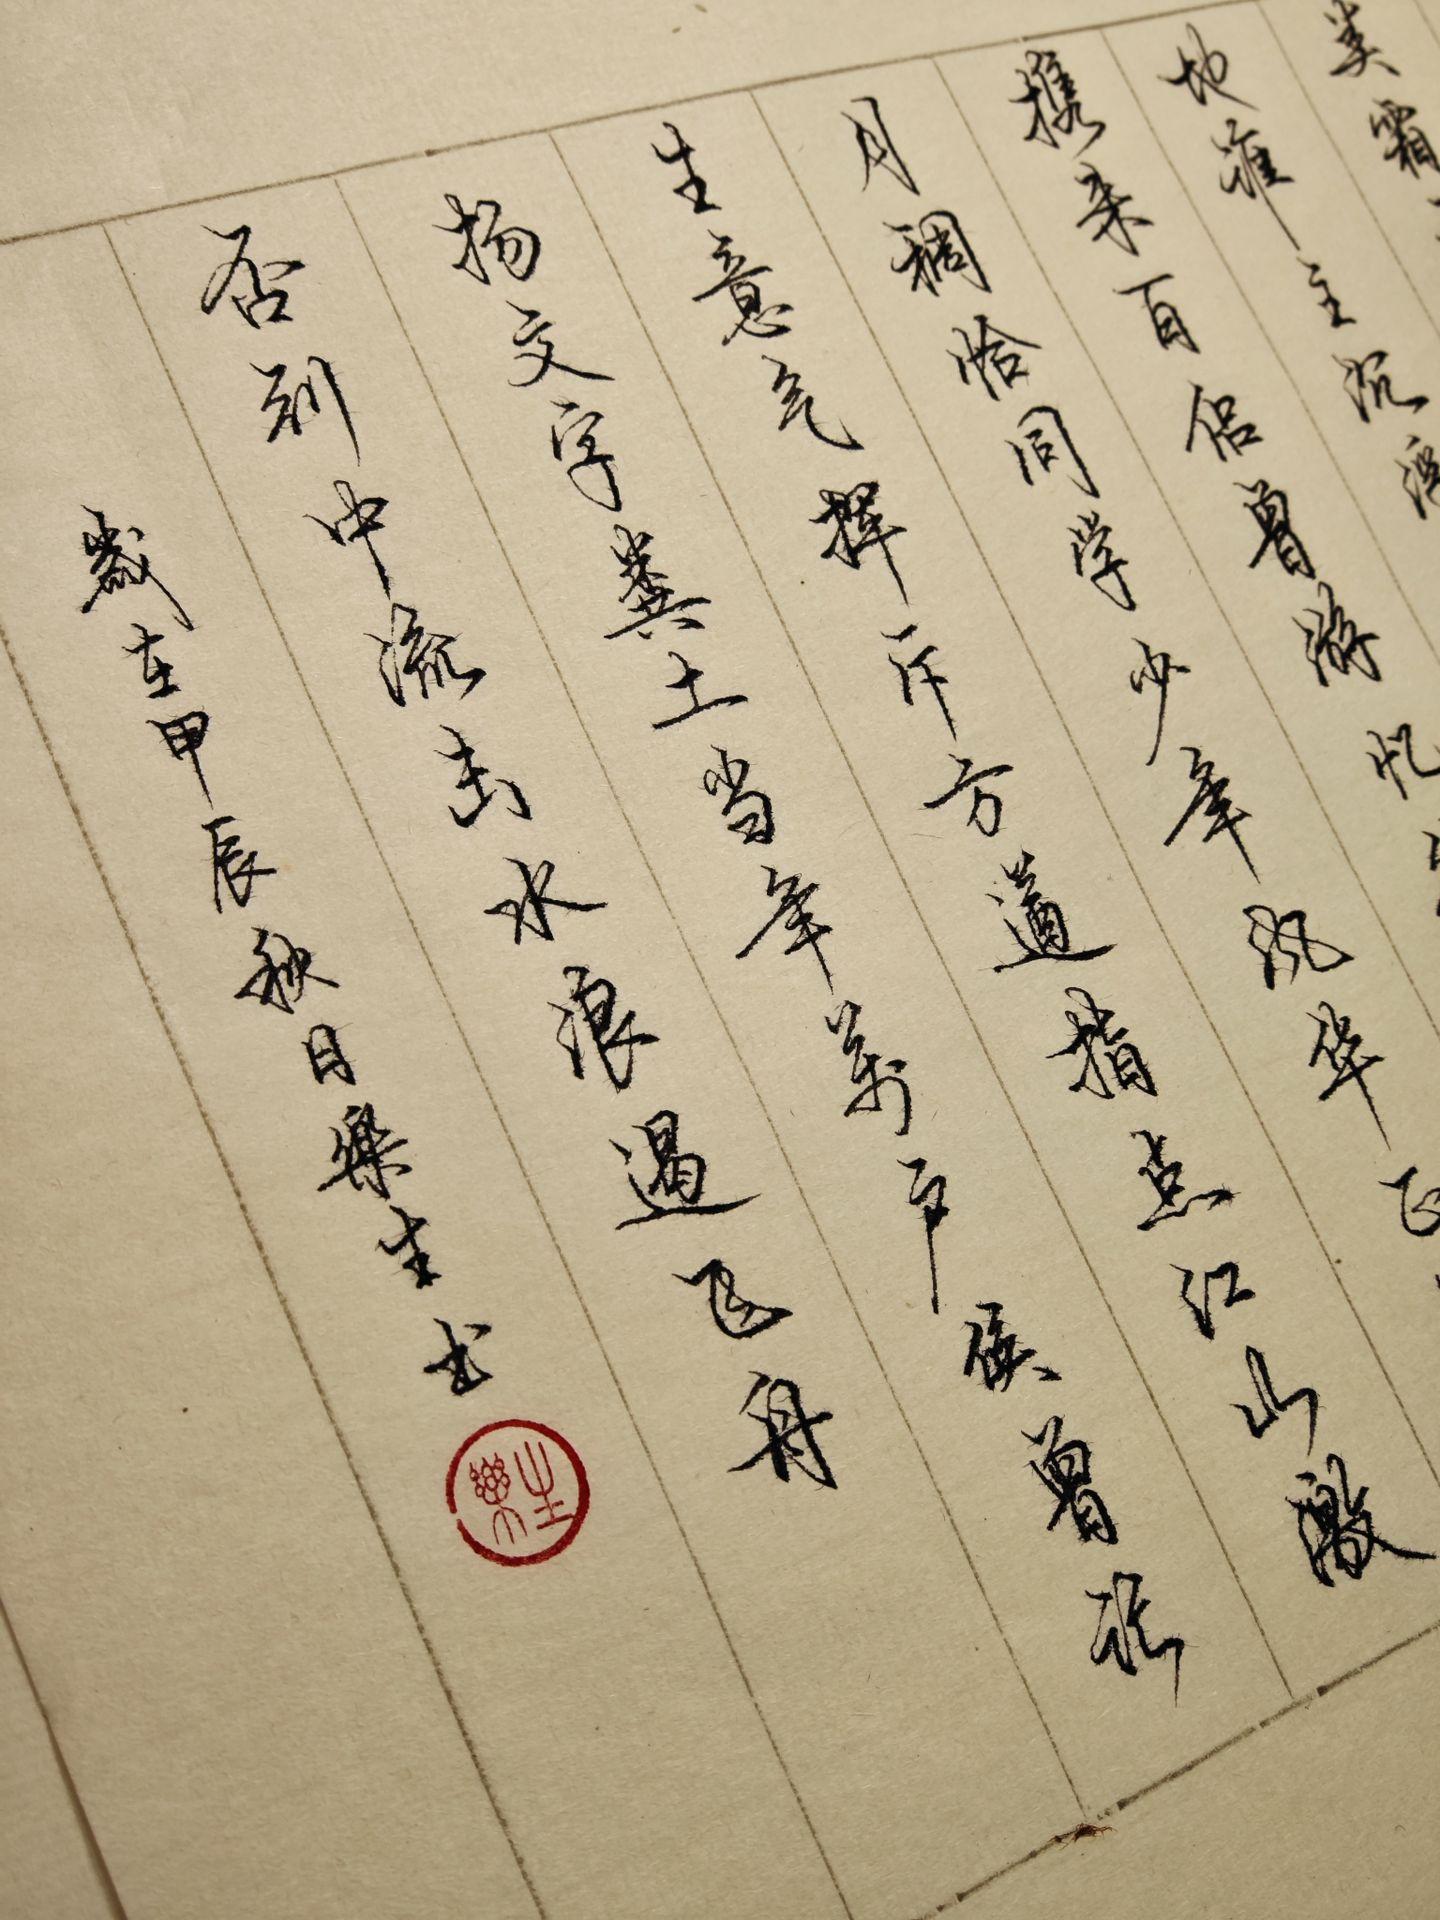 类霜
地谁主沉浮
携来百侣曾游忆
月稠恰同学少年风华正
生意气挥斥方遒指点江山激
扬文字粪土当年萬户侯曾记
否到中流击水浪遏飞舟
歲在甲辰秋日樂生书
樂生